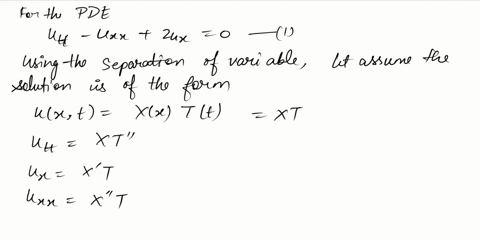 For the PDE
u_tt - u_xx + 2u_x = 0 —(1)
Using the separation of variable, let assume the
solution is of the form
u(x,t) = X(x) T(t) = XT
u_tt = XT"
u_x = X'T
u_xx = X"T